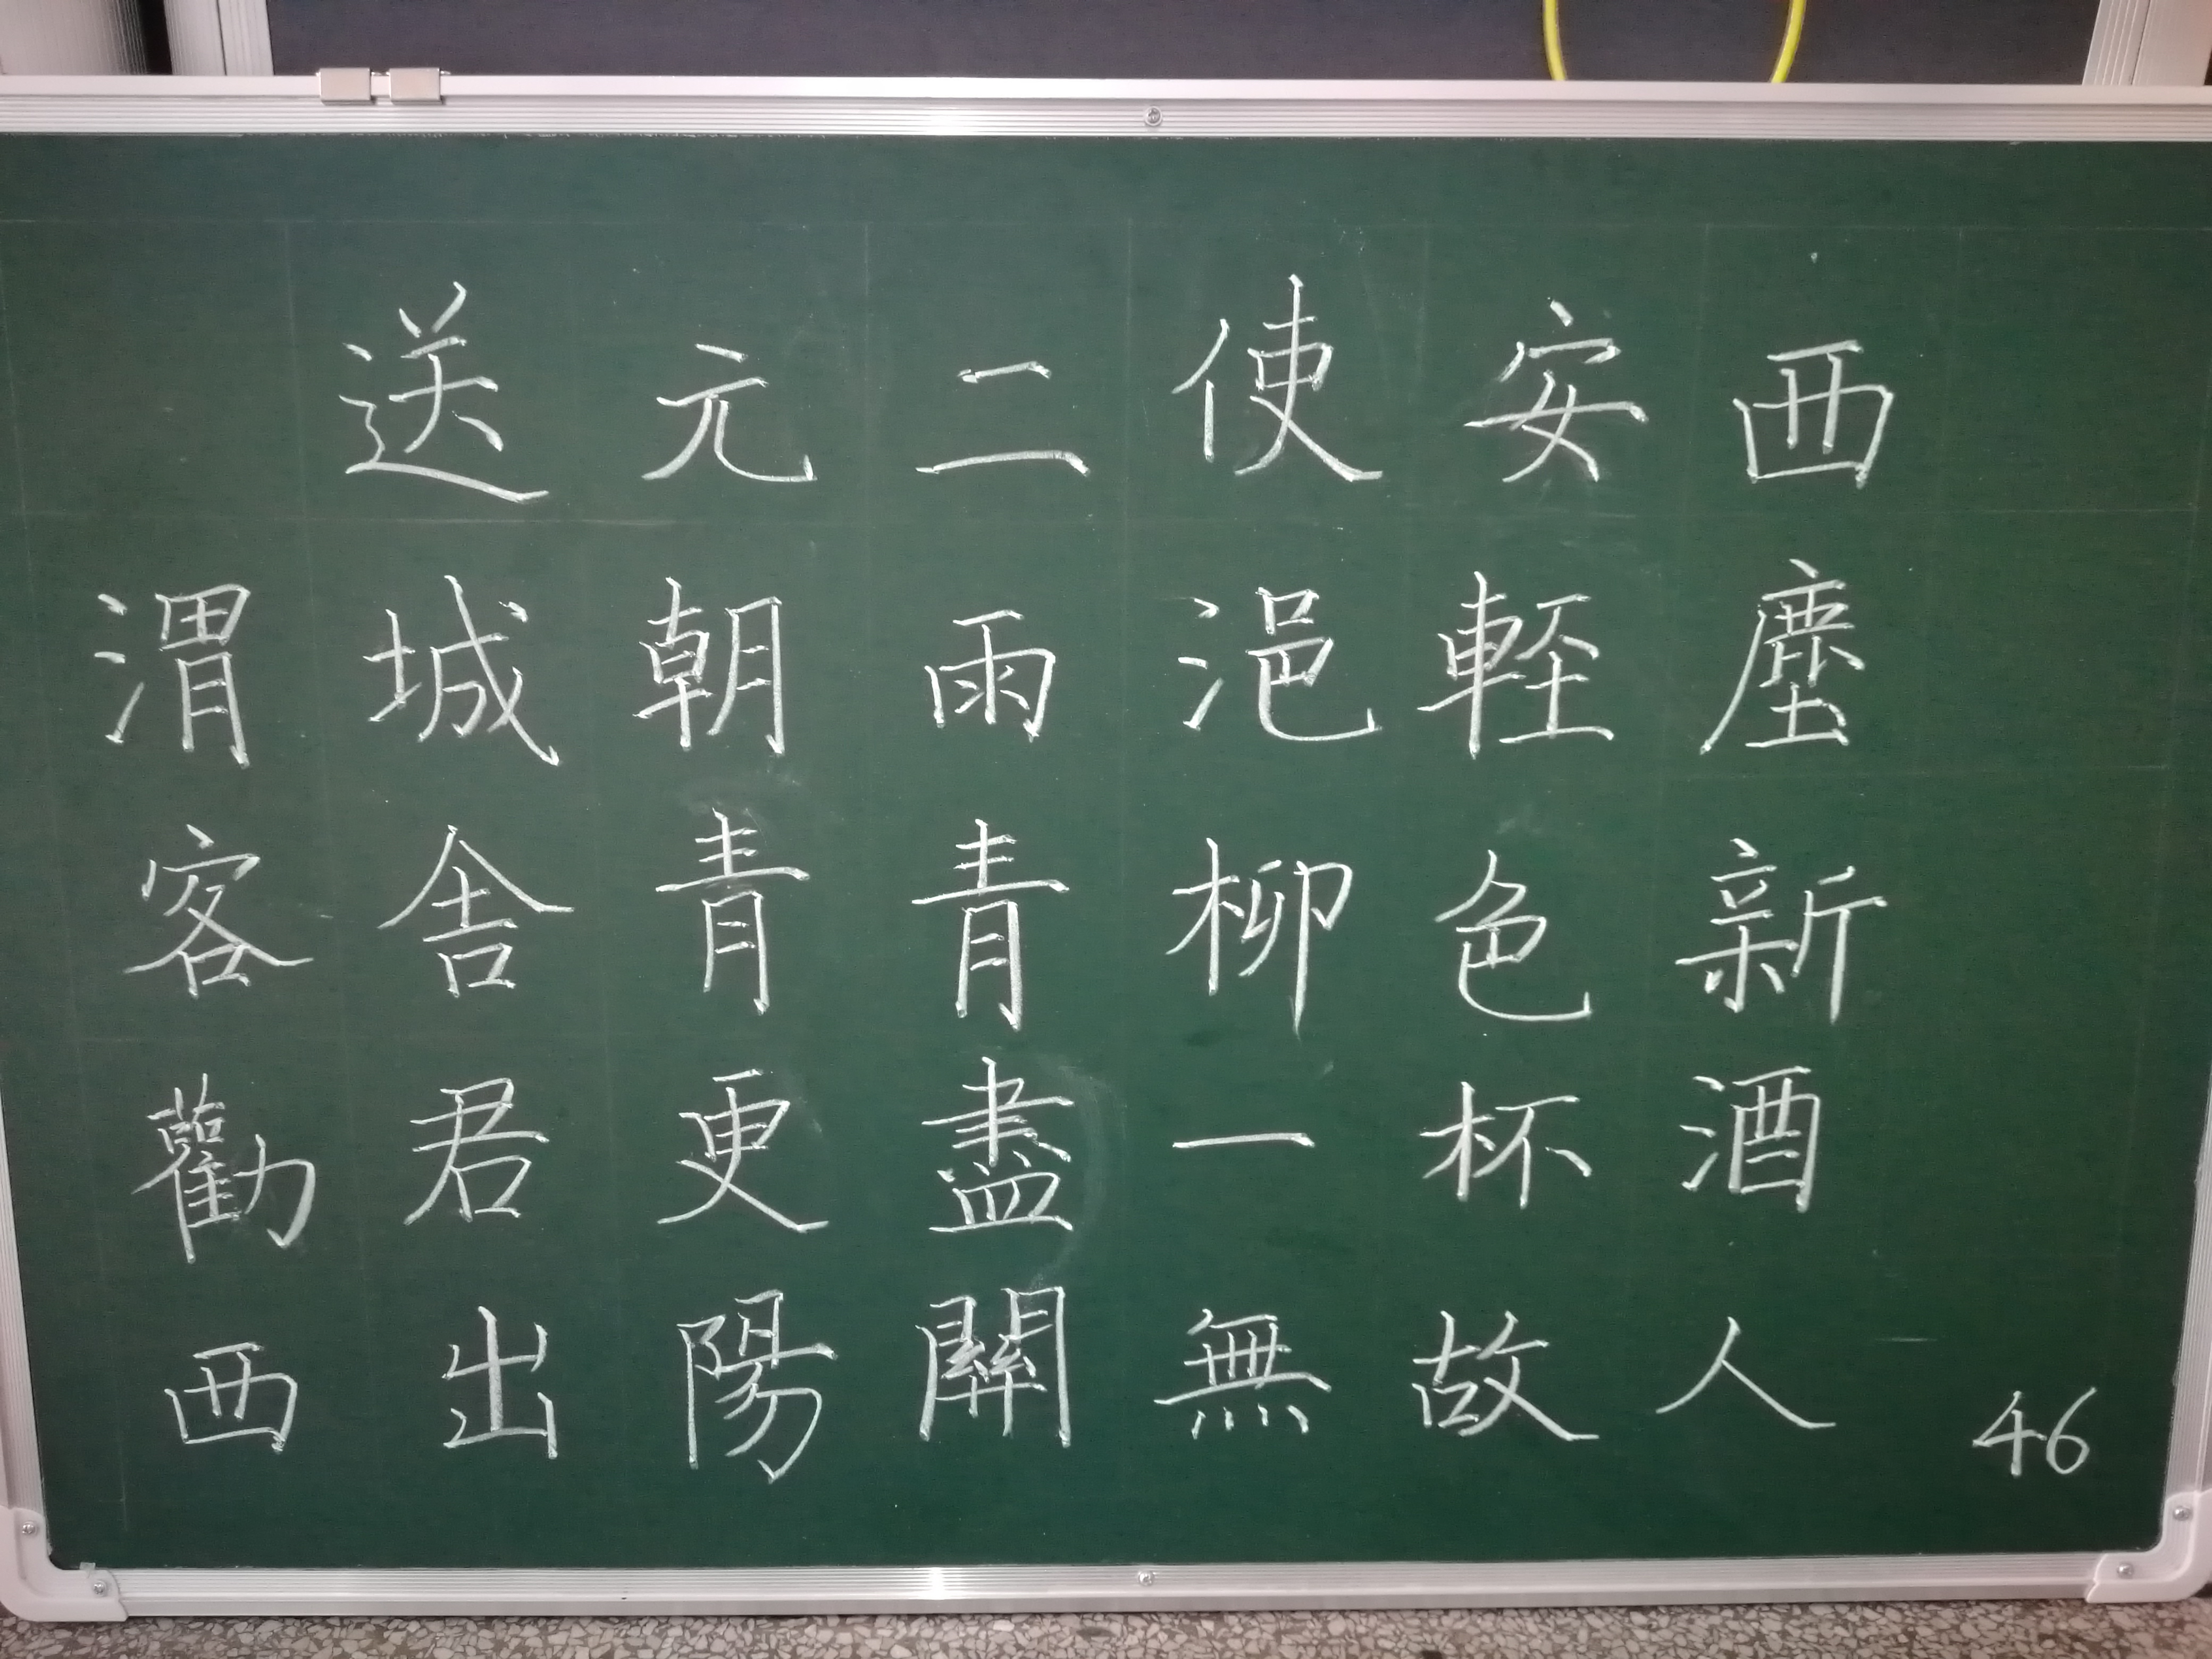 送元二使安西
渭城朝雨浥輊塵
客舎青青柳色新
勸君更盡一杯酒
西出陽關無故人
46